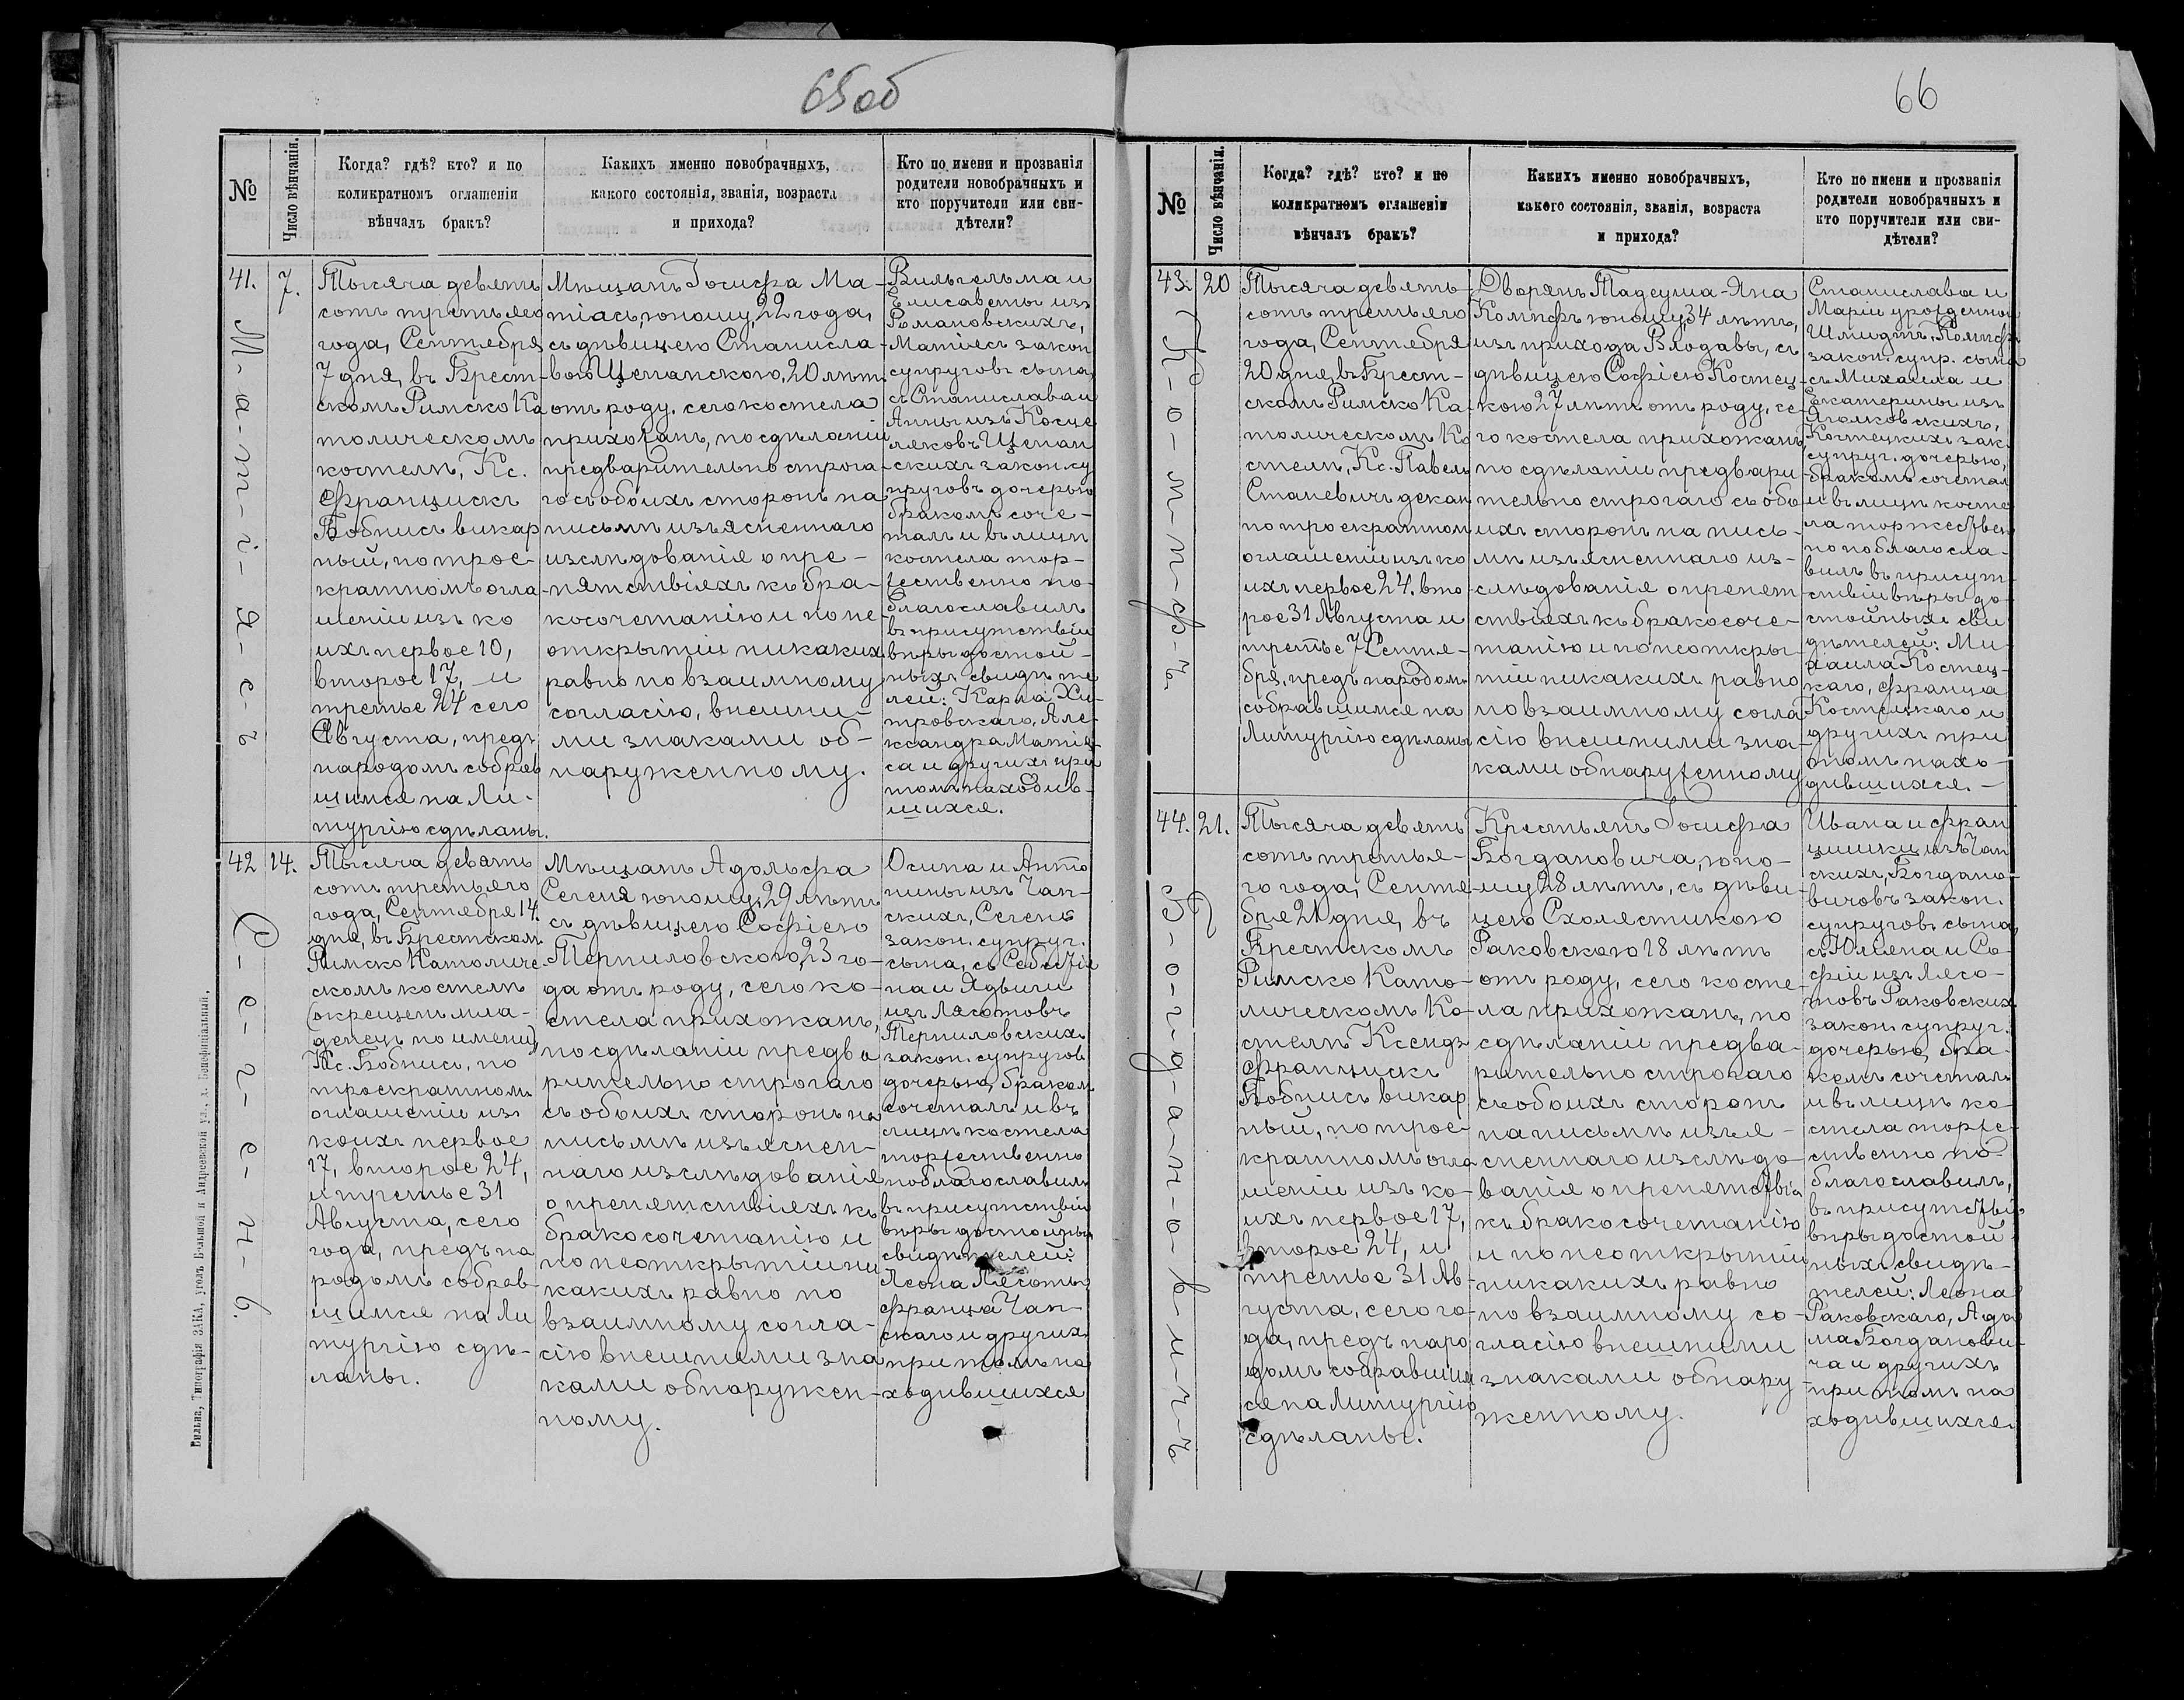 65 об
№
Число вѣнчанія.
Когда? гдѣ? кто? и по
коликратномъ оглашеніи
вѣнчалъ бракъ?
Какихъ именно новобрачныхъ,
какого состоянія, званія, возраста
и прихода?
Кто по имени и прозванія
родители новобрачныхъ и
кто поручители или сви-
дѣтели?
41.
М-а-т-і-я-с-ъ
7.
Тысяча девять
сотъ третьяго
года, Сентября
7 дня, въ Брест-
скомъ Римско Ка
толическомъ
костелѣ, Кс.
Францискъ
Бобнисъ викар
ный, по трое-
кратномъ огла
шеніи изъ ко
ихъ первое 10,
второе 17, и
третье 24 сего
Августа, предъ
народомъ собрав
шимся на Ли-
тургію сдѣланы.
Мѣщанъ Іосифа Ма-
тіасъ, юношу, 22 года,
съ дѣвицею Станисла-
вою Щепанскою, 20 лѣтъ
отъ роду, сего костела
прихожанъ, по сдѣланіи
предварительно строга-
го съ обоихъ сторонъ на
письмѣ изъясненнаго
изслѣдованія о пре-
пятствіяхъ къ бра-
косочетанію и по не
открытіи никакихъ
равно по взаимному
согласію, внѣшни-
ми знаками об-
наруженному.
Вильгельма и
Елисаветы изъ
Романовскихъ,
Матіясъ закон
супруговъ сына,
съ Станислава и
Анны изъ Косце
ляковъ Щепан
скихъ закон. су
пруговъ дочерью
бракомъ соче-
талъ и въ лицѣ
костела тор-
жественно по-
благославилъ
въ присутствіи
вѣры достой-
ныхъ свидѣте
лей: Карла Хи-
тровскаго, Але-
ксандра Матія-
са и другихъ при
томъ находив-
шихся.
42
С-е-г-е-н-ь.
14.
Тысяча девять
сотъ третьяго
года, Сентября 14
дня, въ Брестскомъ
Римско Католиче
скомъ костелѣ
(окрещенъ мла-
денецъ по имени)
Кс. Бобнисъ, по
троекратномъ
оглашеніи изъ
коихъ первое
17, второе 24,
и третье 31
Августа, сего
года, предъ на
родомъ собрав-
шимся на Ли
тургію сдѣ-
ланы.
Мѣщанъ Адольфа
Сегеня юношу, 29 лѣтъ
съ дѣвицею Софіею
Терпиловскою, 23 го-
да отъ роду, сего ко-
стела прихожанъ,
по сдѣланіи предва
рительно строгаго
съ обоихъ сторонъ на
письмѣ изъяснен-
наго изслѣдованія
о препятствіяхъ къ
бракосочетанію и
по неоткрытіи ни
какихъ равно по
взаимному согла-
сію внѣшними зна
ками обнаружен-
ному.
Осипа и Анто
нины изъ Чап-
скихъ, Сегень
закон. супруг.
сына, съ Себастія
на и Ядвиги
изъ Лясотовъ
Терпиловскихъ
закон. супругов
дочерью, бракомъ
сочеталъ и въ
лицѣ костела
торжественно
поблагославилъ
въ присутствіи
вѣры достойныхъ
свидѣтелей:
Леона Лясоты,
Франца Чап-
скаго и другихъ
при томъ на
ходившихся
Вильна, Типографія ЗАКА, уголъ Большой и Андреевской ул., д. Бенефиціальный.
66
№
Число вѣнчанія.
Когда? гдѣ? кто? и по
коликратномъ оглашеніи
вѣнчалъ бракъ?
Какихъ именно новобрачныхъ,
какого состоянія, званія, возраста
и прихода?
Кто по имени и прозванія
родители новобрачныхъ и
кто поручители или сви-
дѣтели?
43.
20
Тысяча девять-
сотъ третьяго
года, Сентября
20 дня, въ Брест-
скомъ Римско Ка-
толическомъ Ко
стелѣ, Кс. Павелъ
Станевичъ декан
по троекратном
оглашеніи изъ ко
ихъ первое 24, вто
рое 31 Августа и
третье 7 Сентя-
бря, предъ народомъ
собравшимся на
Литургію сдѣланы
Дворянъ Тадеуша-Яна
Компфъ юношу, 34 лѣтъ,
изъ прихода Влодавы, съ
дѣвицею Софіею Костец-
кою 27 лѣтъ отъ роду, се-
го костела прихожанъ
по сдѣланіи предвари-
тельно строгаго съ обо
ихъ сторонъ на пись-
мѣ изъясненнаго из-
слѣдованія о препят
ствіяхъ къ бракосоче-
танію и по неоткры-
тіи никакихъ равно
по взаимному согла-
сію внѣшними зна-
ками обнаруженному
Станислава и
Маріи урожденной
Шмидтъ, Компфъ
закон. супр. сына
съ Михаила и
Екатерины изъ
Костецкихъ зак.
супруг. дочерью,
бракомъ сочетал
и въ лицѣ косте
ла торжествен
но поблагосла-
вилъ въ присут-
ствіи вѣры до-
стойныхъ сви
дѣтелей: Ми-
хаила Костец-
каго, Франца
Костецкаго и
другихъ при
томъ нахо-
дившихся.-
44.
Б-о-г-д-а-н-о-в-и-ч-ъ
21.
Тысяча девять
сотъ третья-
го года, Сентя-
бря 21 дня, въ
Брестскомъ
Римско Като-
лическомъ Ко-
стелѣ Ксендзъ
Францискъ
Бобнисъ викар
ный, по трое-
кратномъ огла
шеніи изъ ко-
ихъ первое 17,
второе 24, и
третье 31 Ав-
густа, сего го-
да, предъ наро
домъ собравшим
ся на Литургію
сдѣланы.
Крестьянъ Іосифа
Богдановича, юно-
шу 28 лѣтъ, съ дѣви-
цею Схолястикою
Раковскою 18 лѣтъ
отъ роду, сего косте-
ла прихожанъ, по
сдѣланіи предва-
рительно строгаго
съ обоихъ сторонъ
на письмѣ изъя-
сненнаго изслѣдо-
ванія о препятствія
къ бракосочетанію
и по неоткрытіи
никакихъ равно
по взаимному со-
гласію внѣшними
знаками обнару
женному.
Ивана и Фран
цишки изъ Чап
скихъ, Богдано-
вичовъ закон.
супруговъ сына,
съ Юліана и Со-
фіи изъ Лясо-
товъ Раковскихъ
закон. супруг.
дочерью, бра-
комъ сочеталъ
и въ лицѣ ко-
стела торже-
ственно по-
благославилъ,
въ присутствіи
вѣры достой-
ныхъ свидѣ-
телей: Леона
Раковскаго, Ада
ма Богданови-
ча и другихъ
при томъ на
ходившихся.